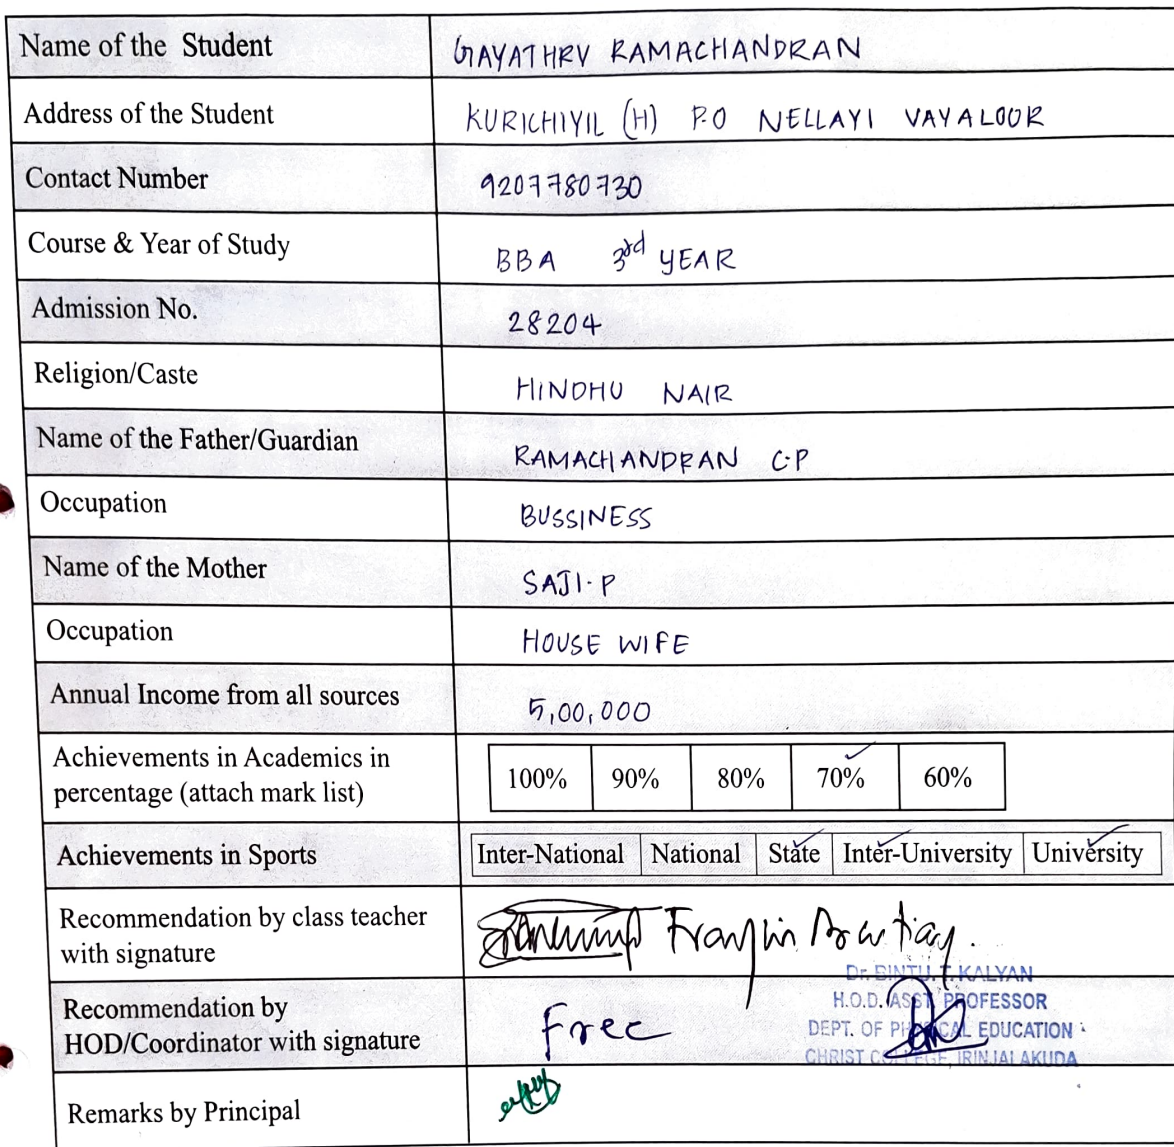 Name of the Student GAYATHRV RAMACHANDRAN
Address of the Student KURICHIYIL (H) P.O NELLAYI VAYALOOR
Contact Number 9207780730
Course & Year of Study BBA 3rd YEAR
Admission No. 28204
Religion/Caste HINDHU NAIR
Name of the Father/Guardian RAMACHANDRAN C.P
Occupation BUSSINESS
Name of the Mother SAJI.P
Occupation HOUSE WIFE
Annual Income from all sources 5,00,000
Achievements in Academics in
percentage (attach mark list) 100% 90% 80% 70% 60%
Achievements in Sports Inter-National National State Inter-University University
Recommendation by class teacher
with signature
Dr. BINTU. T. KALYAN
Recommendation by H.O.D. ASST. PROFESSOR
HOD/Coordinator with signature Free DEPT. OF PHYSICAL EDUCATION
CHRIST COLLEGE, IRINJALAKUDA
Remarks by Principal